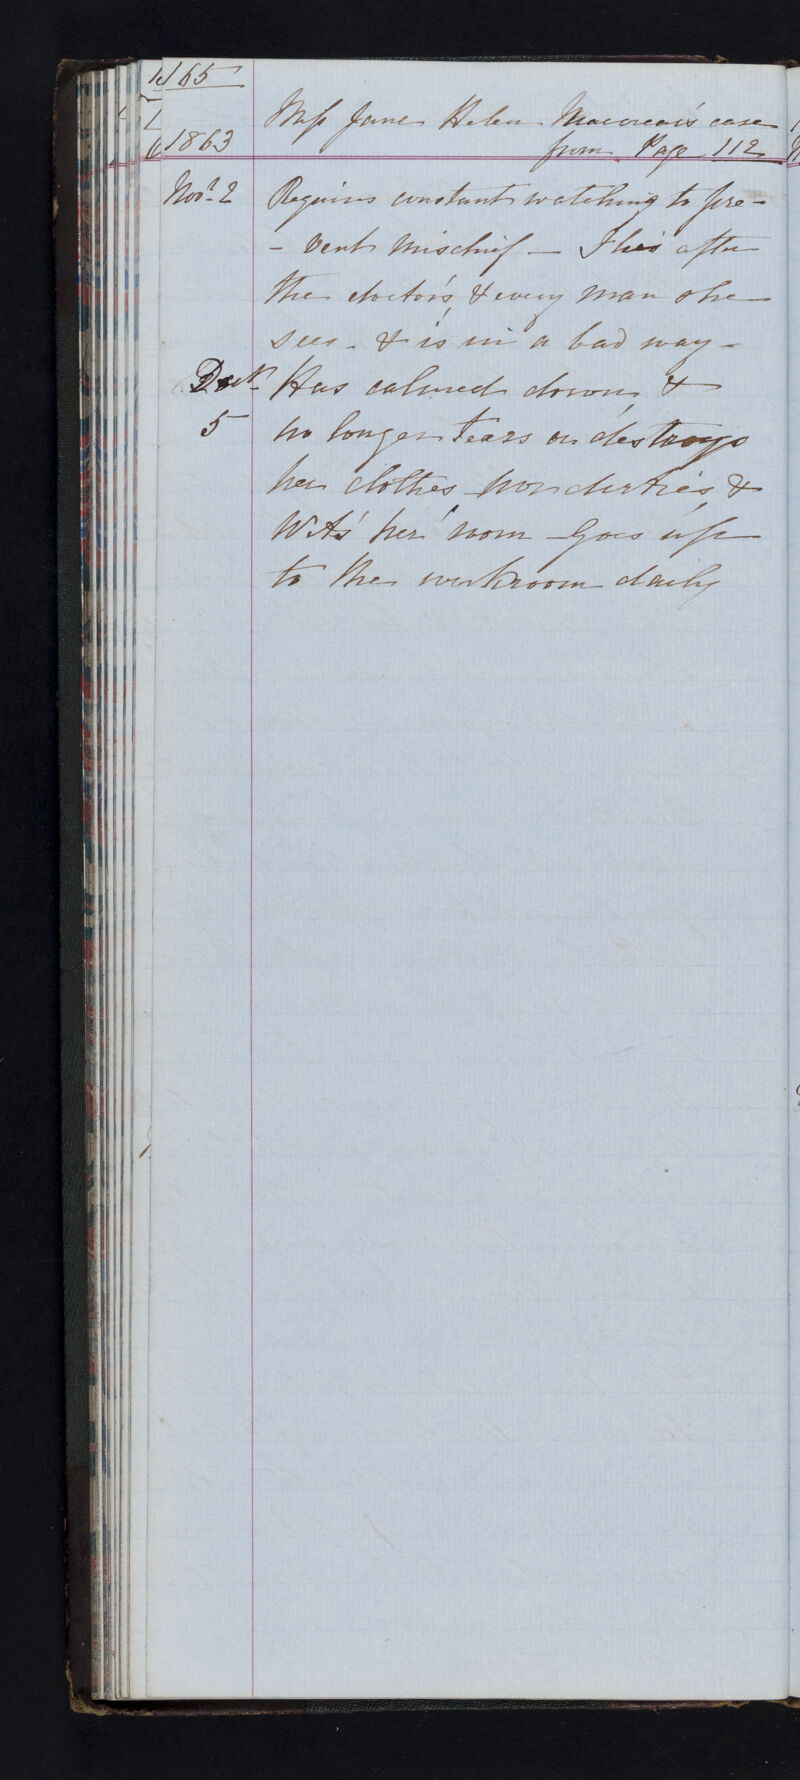 165
Miss Jane Helen case
1863 from Page 112
Novr. 2 Requires constant watching to pre-
- vent mischief - Flies after
the doctors, & every man she
sees - & is in a bad way -
Decr. Has calmed down, &
5 no longer tears or destroys
her clothes nor dirties &
wets her room - Goes up
to the workroom daily